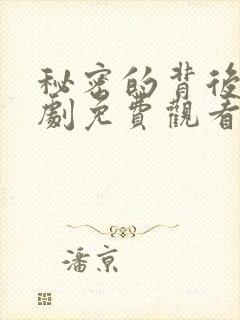 秘密的背後
劇免費觀看
潘京